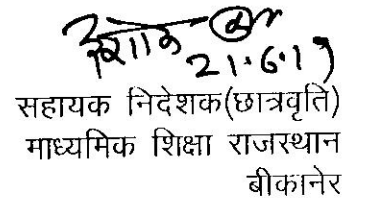 21.6.19
सहायक निदेशक(छात्रवृति)
माध्यमिक शिक्षा राजस्थान
बीकानेर